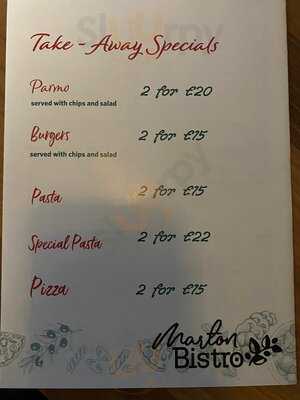 Take - Away Specials
Parmo 2 for £20
served with chips and salad
Burgers 2 for £15
served with chips and salad
Pasta 2 for £15
Special Pasta 2 for £22
Pizza 2 for £15
Marton
Bistro